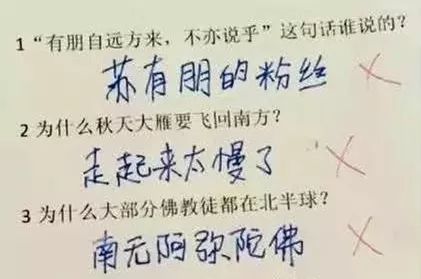 1“有朋自远方来，不亦说乎”这句话谁说的？
苏有朋的粉丝
2 为什么秋天大雁要飞回南方？
走起来太慢了
3 为什么大部分佛教徒都在北半球？
南无阿弥陀佛